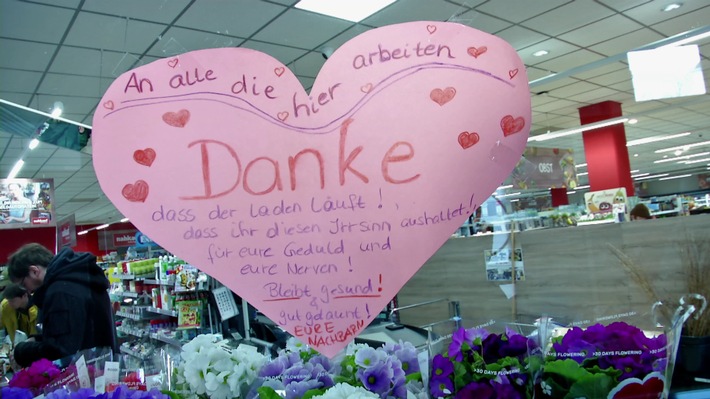 An alle die hier arbeiten
Danke
dass der Laden Läuft!,
dass ihr diesen Irrsinn aushaltet!
für eure Geduld und
eure Nerven!
Bleibt gesund!
&
gut gelaunt!
EURE
NACHBARN
OBST
>30 DAYS FLOWERING
>30 DAYS FLOWERING
>30 DAYS FLOWERING
>30 DAYS FLOWERING